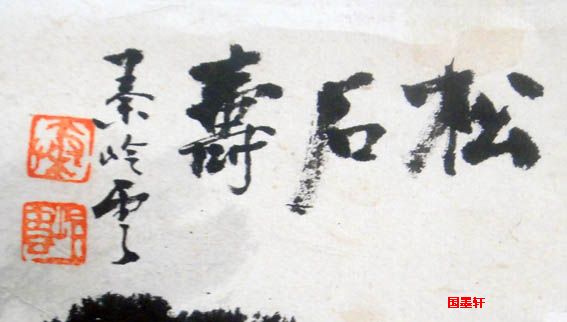 松石壽
秦岭雲
国墨轩